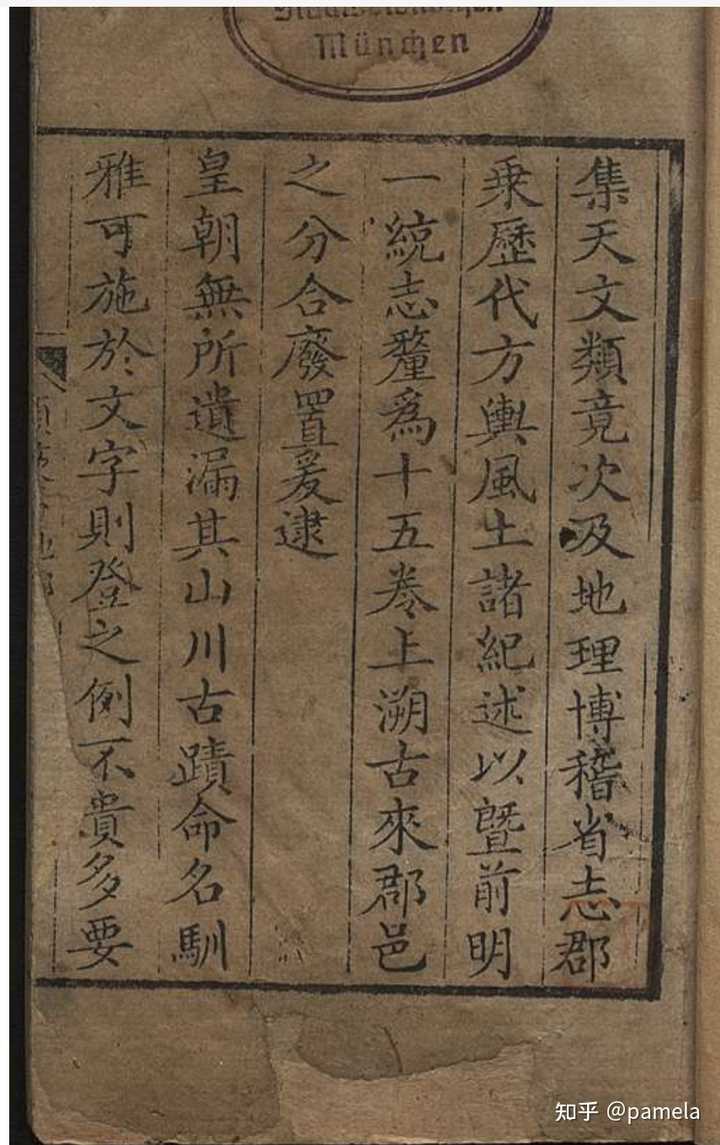 München
集天文類竟次及地理博稽省志郡
乗歷代方輿風土諸紀述以曁前明
一統志釐爲十五卷上溯古來郡邑
之分合廢置爰逮
皇朝無所遺漏其山川古蹟命名馴
雅可施於文字則登之例不貴多要
知乎 @pamela